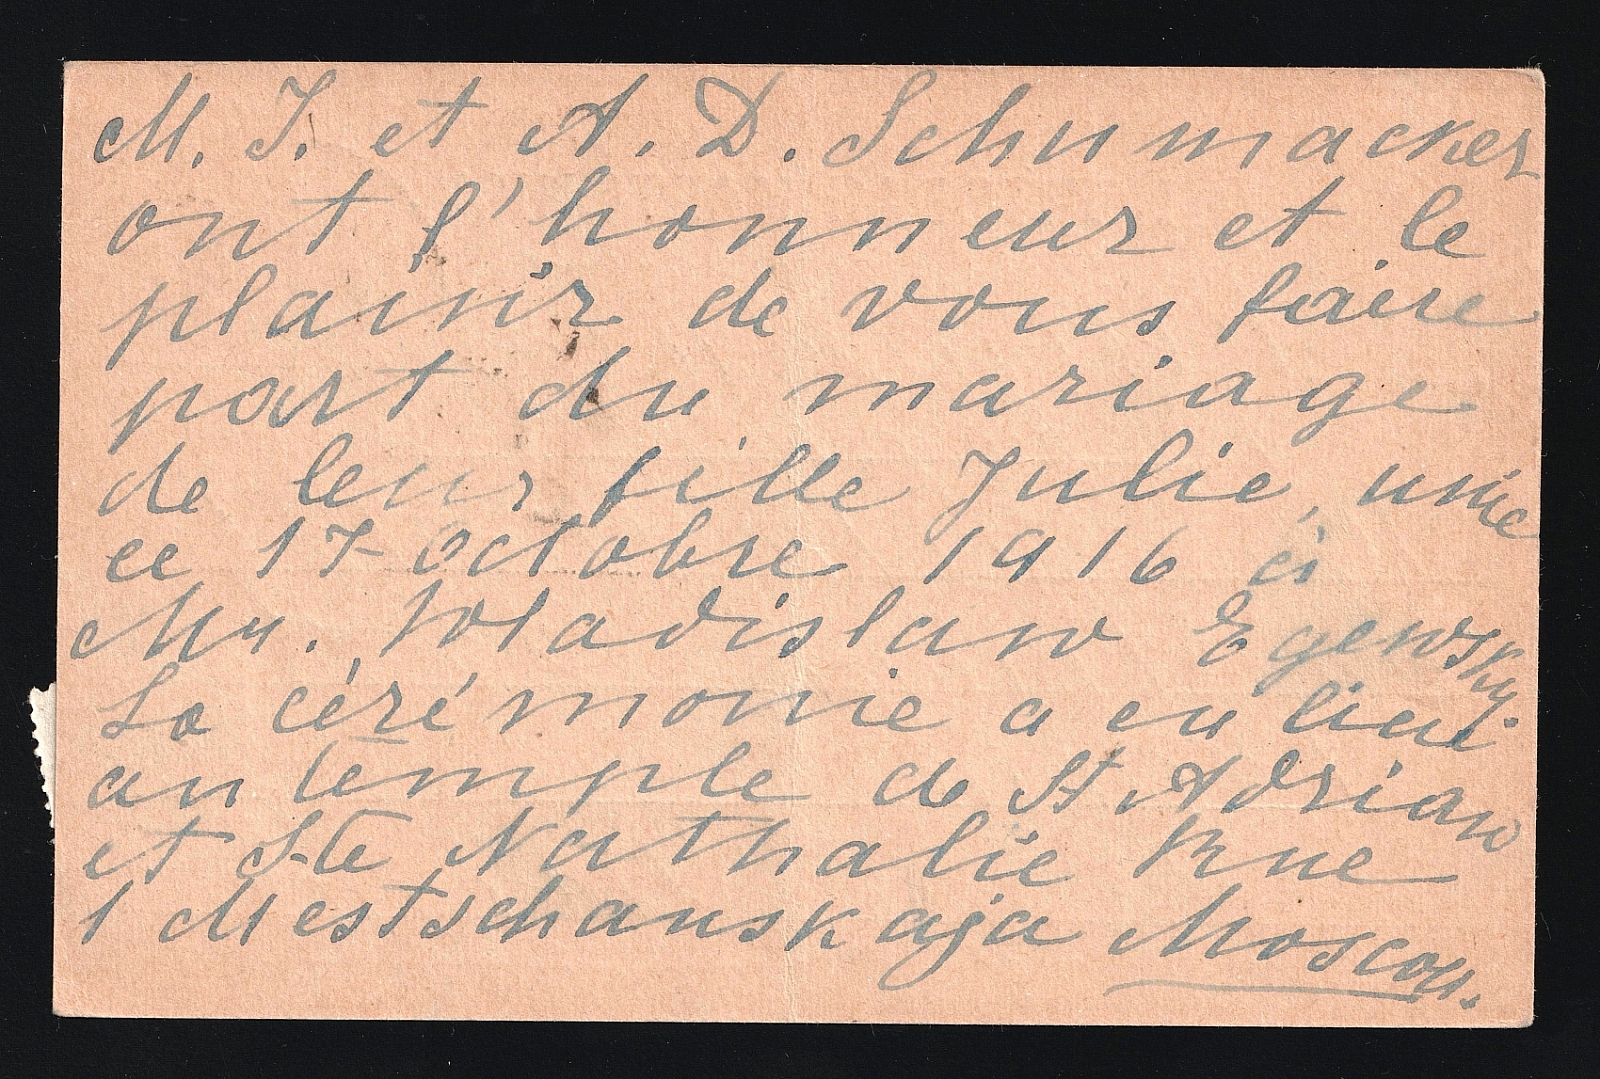 M. J. et A. D. Schumacker
ont l'honneur et le
plaisir de vous faire
part du mariage
de leur fille Julie, unie
ce 17 Octobre 1916 à
Mr. Wladislaw Egewsky.
La cérémonie a eu lieu
au temple de St Adrian
et S-te Nathalie Rue
1 Mestschanskaja Moscou.